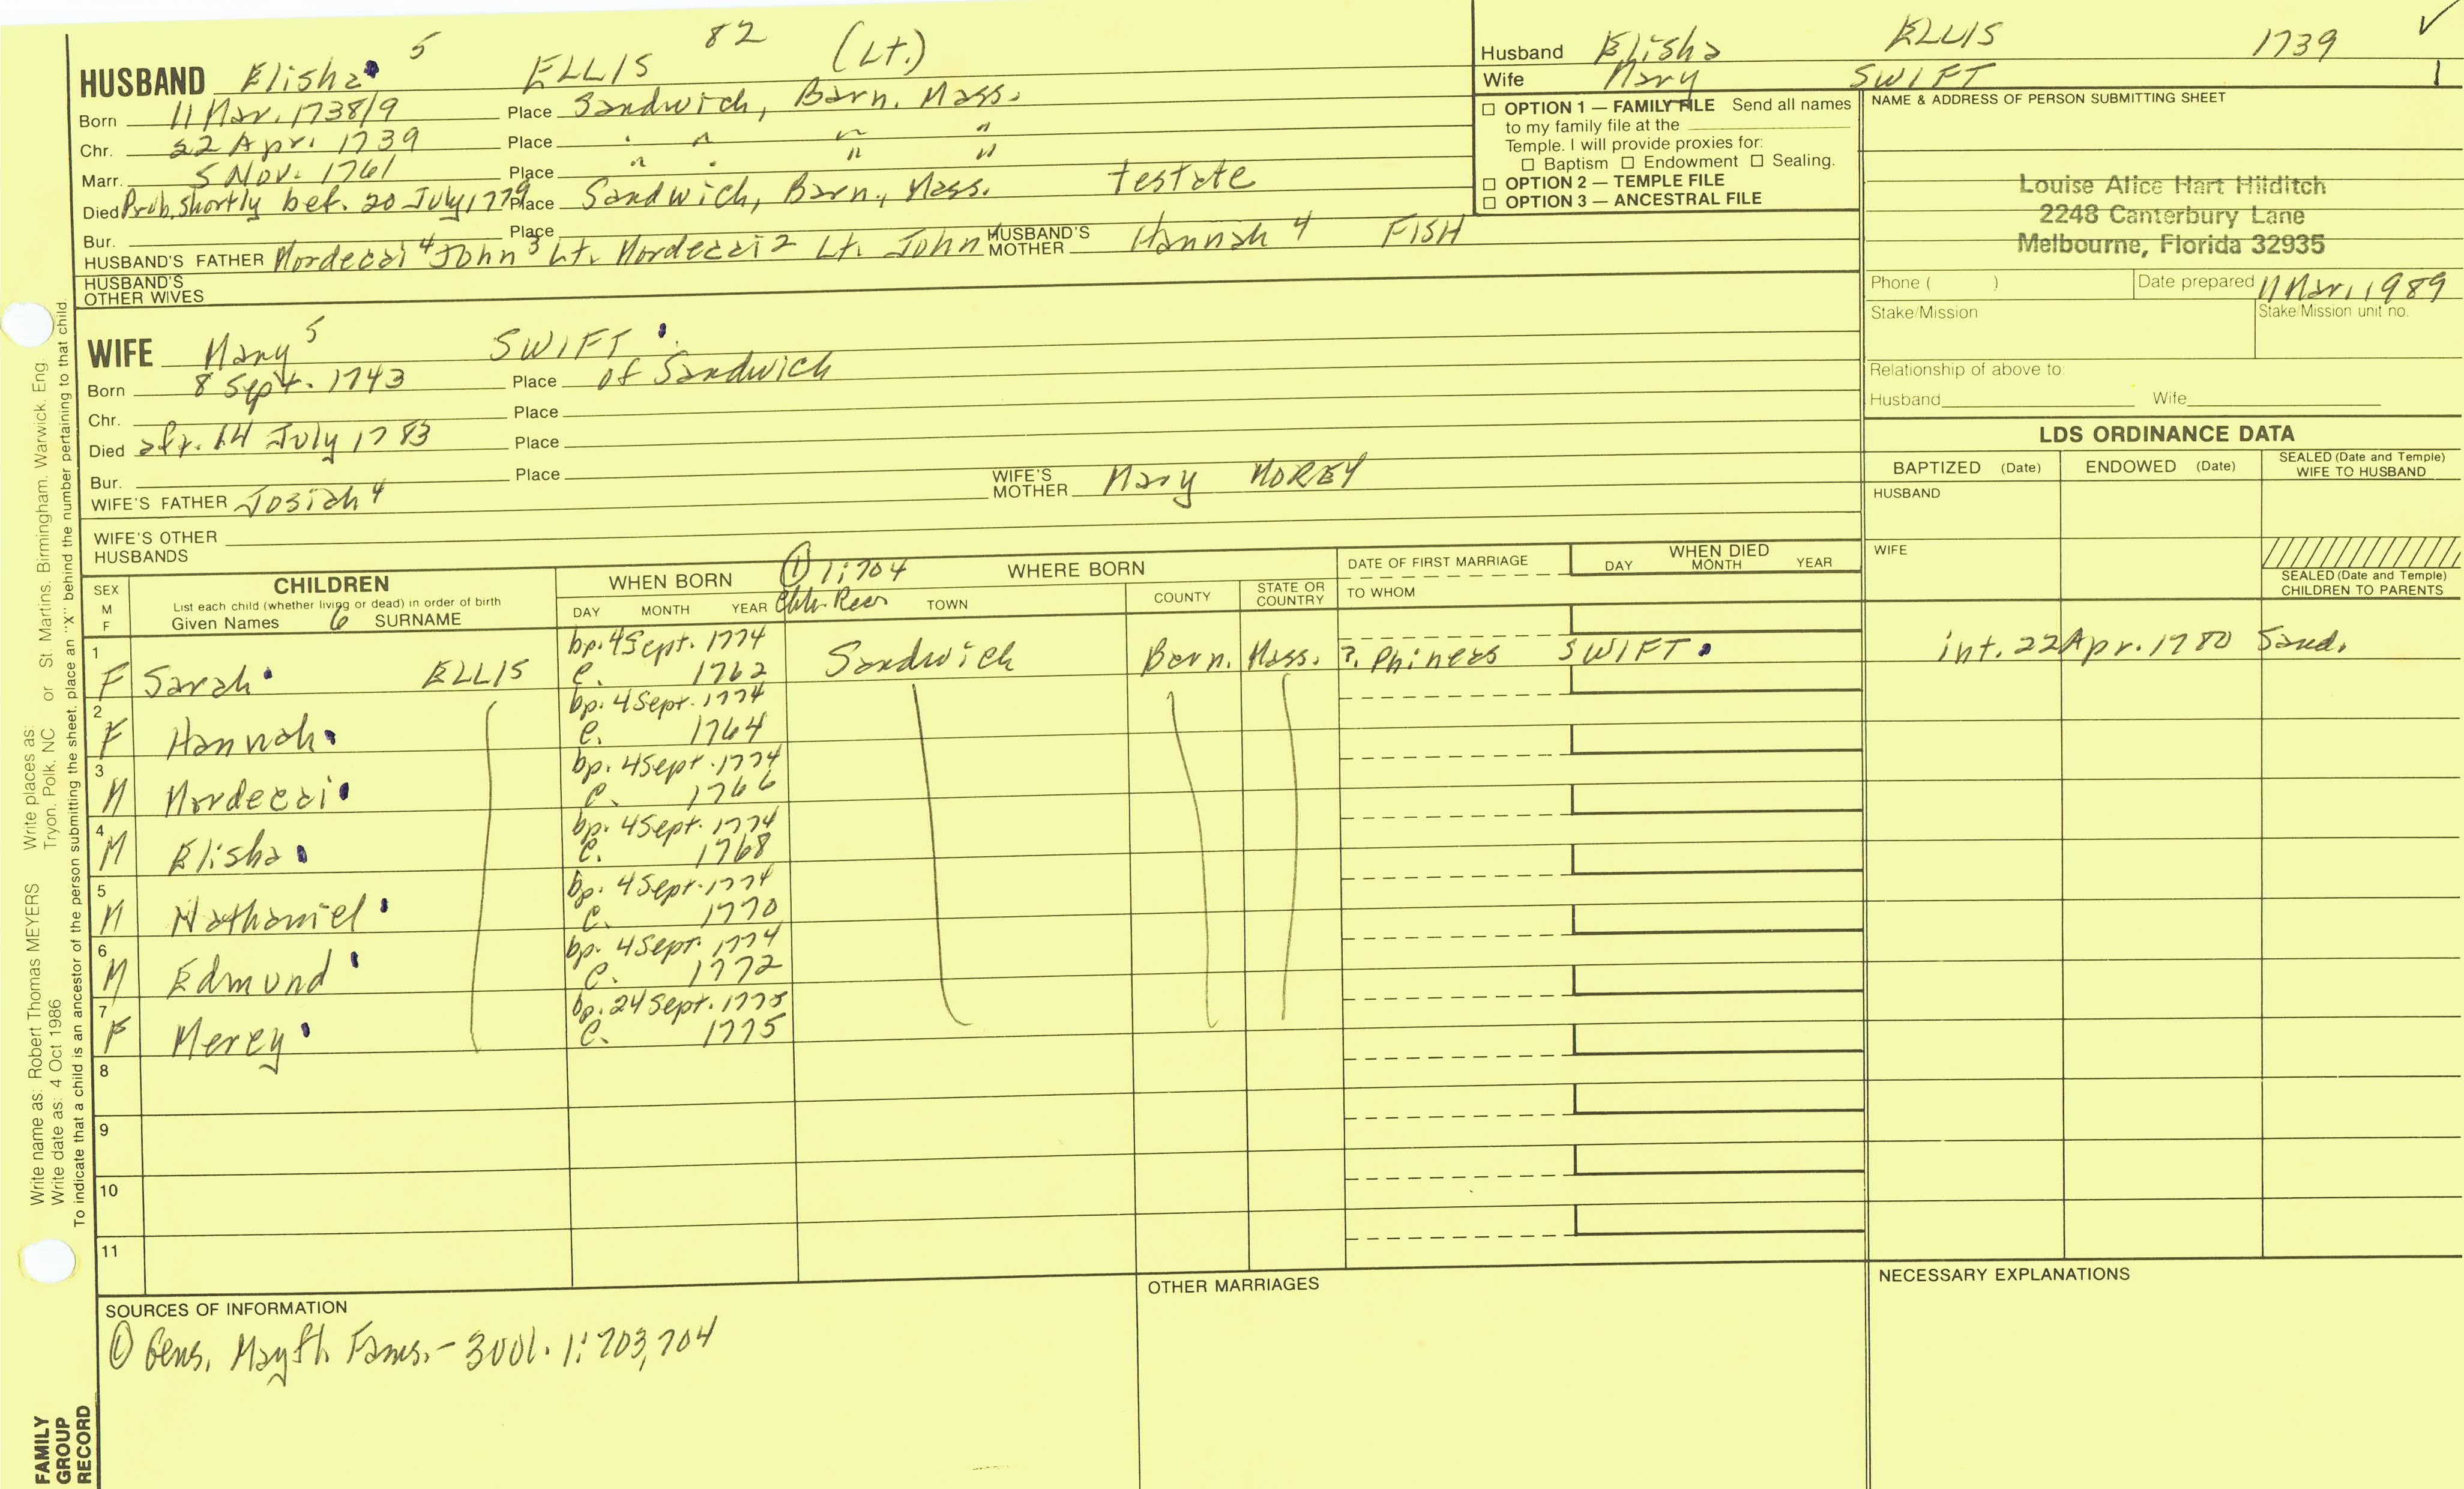 HUSBAND Elisha 5 ELLIS 82 (Lt.)
Born 11 Mar. 1738/9 Place Sandwich, Barn. Mass.
Chr. 22 Apr. 1739 Place " " " "
Marr. 5 Nov. 1761 Place " " " "
Died Prob. shortly bef. 20 July 1779 Place Sandwich, Barn., Mass. testate
Bur. Place
HUSBAND'S FATHER Mordecai 4 John 3 Lt. Mordecai 2 Lt. John HUSBAND'S MOTHER Hannah 4 FISH
HUSBAND'S OTHER WIVES
WIFE Mary 5 SWIFT
Born 8 Sept. 1743 Place of Sandwich
Chr. Place
Died aft. 14 July 1783 Place
Bur. Place
WIFE'S FATHER Josiah 4 WIFE'S MOTHER Mary MOREY
WIFE'S OTHER HUSBANDS
Husband Elisha ELLIS 1739 ✓
Wife Mary SWIFT 1
☐ OPTION 1 — FAMILY FILE Send all names
to my family file at the
Temple. I will provide proxies for:
☐ Baptism ☐ Endowment ☐ Sealing.
☐ OPTION 2 — TEMPLE FILE
☐ OPTION 3 — ANCESTRAL FILE
NAME & ADDRESS OF PERSON SUBMITTING SHEET
Louise Alice Hart Hilditch
2248 Canterbury Lane
Melbourne, Florida 32935
Phone ( ) Date prepared 11 Mar. 1989
Stake/Mission Stake/Mission unit no.
Relationship of above to:
Husband Wife
LDS ORDINANCE DATA
BAPTIZED (Date) ENDOWED (Date) SEALED (Date and Temple) WIFE TO HUSBAND
HUSBAND
WIFE
SEALED (Date and Temple) CHILDREN TO PARENTS
SEX M F
CHILDREN
List each child (whether living or dead) in order of birth
Given Names 6 SURNAME
WHEN BORN ① 1:704 WHERE BORN
DAY MONTH YEAR Chh. Recs TOWN COUNTY STATE OR COUNTRY
DATE OF FIRST MARRIAGE
TO WHOM
WHEN DIED
DAY MONTH YEAR
1 F Sarah ELLIS bp. 4 Sept. 1774 c. 1762 Sandwich Barn. Mass. ?. Phineas SWIFT int. 22 Apr. 1780 Sand.
2 F Hannah bp. 4 Sept. 1774 c. 1764
3 M Mordecai bp. 4 Sept. 1774 c. 1766
4 M Elisha bp. 4 Sept. 1774 c. 1768
5 M Nathaniel bp. 4 Sept. 1774 c. 1770
6 M Edmund bp. 4 Sept. 1774 c. 1772
7 F Mercy bp. 24 Sept. 1775 c. 1775
8
9
10
11
SOURCES OF INFORMATION
① Gens. Mayfl. Fams. - 3 vol. 1:703,704
OTHER MARRIAGES
NECESSARY EXPLANATIONS
Write places as: Tryon, Polk, NC or St. Martins, Birmingham, Warwick, Eng
Write name as: Robert Thomas MEYERS
Write date as: 4 Oct 1986
To indicate that a child is an ancestor of the person submitting the sheet, place an "X" behind the number pertaining to that child.
FAMILY
GROUP
RECORD